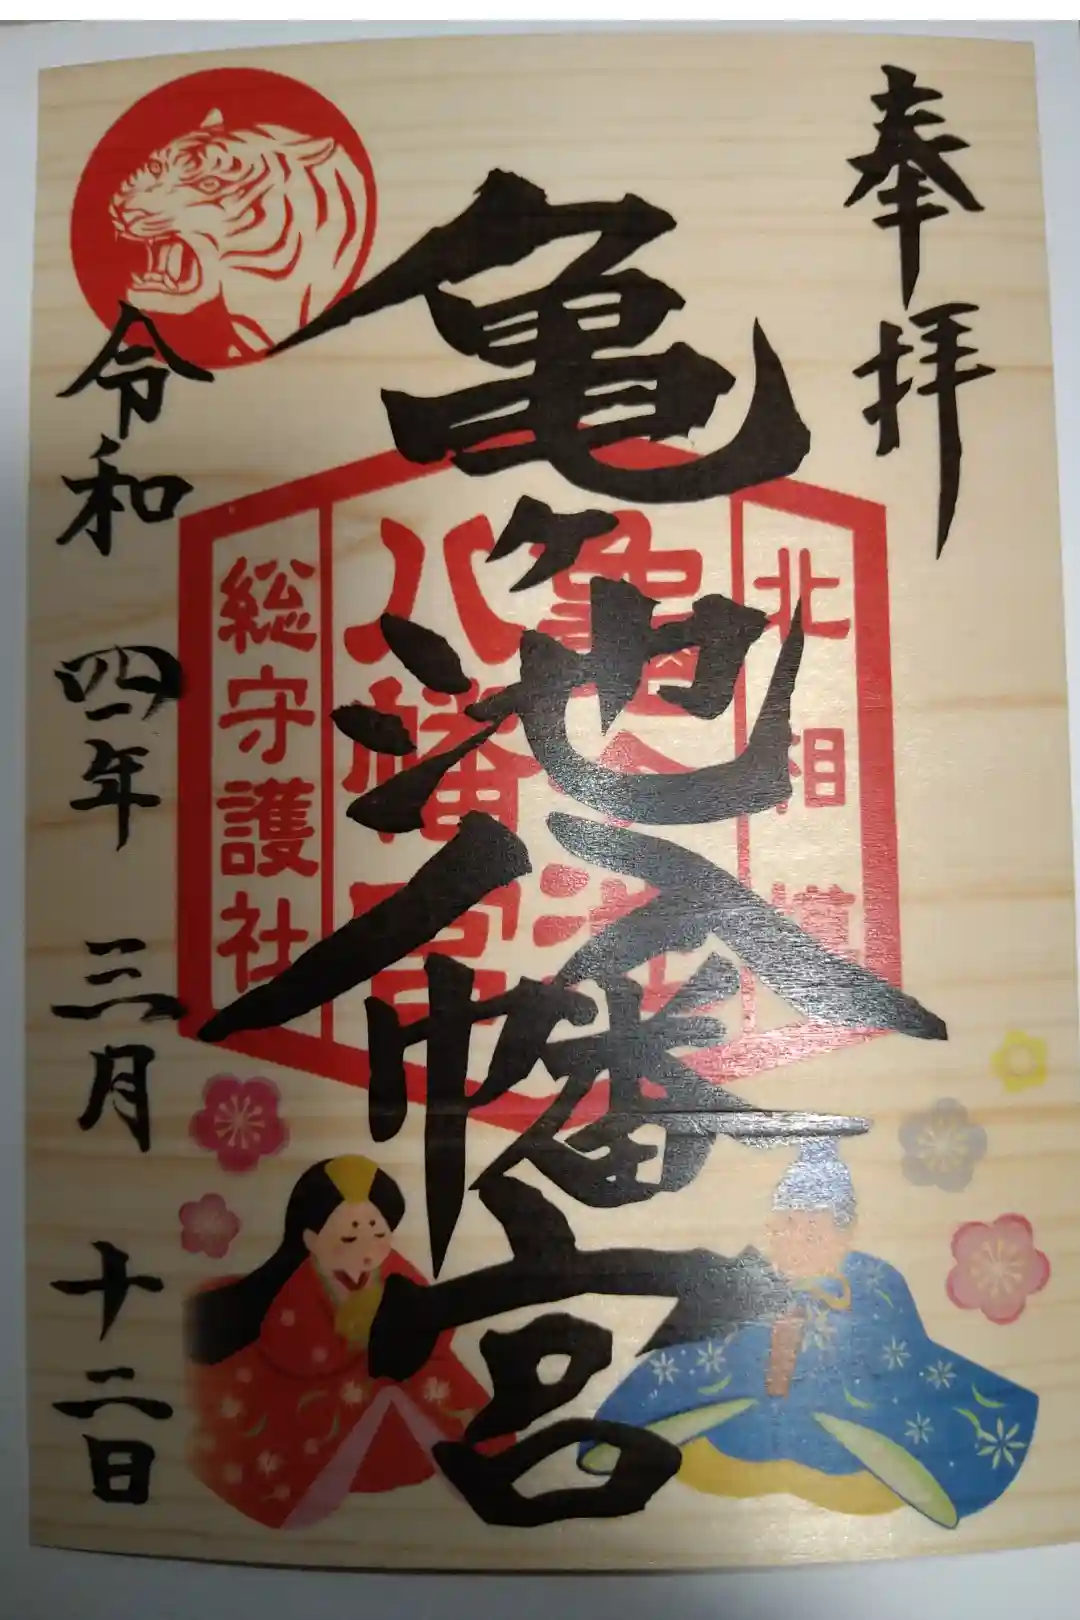 奉拝
亀ヶ池八幡宮
令和四年三月十二日
北相模
亀ヶ池
八幡宮
総守護社